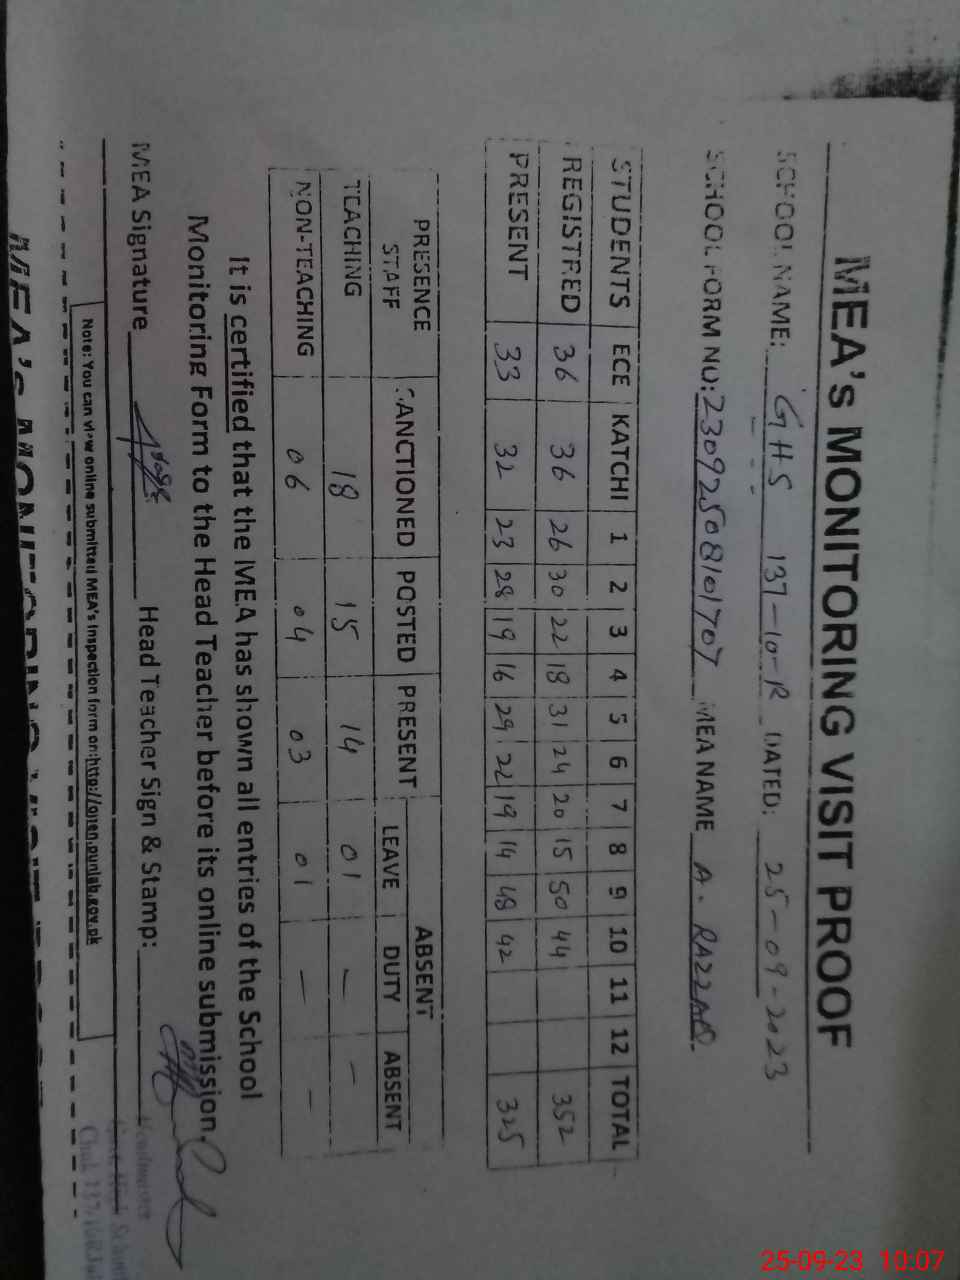 MEA's MONITORING VISIT PROOF
SCHOOL NAME: GHS 137-10-R DATED: 25-09-2023
SCHOOL FORM NO: 23092508101707 MEA NAME A. RAZZAQ.
STUDENTS ECE KATCHI 1 2 3 4 5 6 7 8 9 10 11 12 TOTAL
REGISTRED 36 36 26 30 22 18 31 24 20 15 50 44 352
PRESENT 33 32 23 28 19 16 29 22 19 14 48 42 325
PRESENCE STAFF SANCTIONED POSTED PRESENT ABSENT
LEAVE DUTY ABSENT
TEACHING 18 15 14 01 - -
NON-TEACHING 06 04 03 01 - -
It is certified that the MEA has shown all entries of the School
Monitoring Form to the Head Teacher before its online submission.
MEA Signature Head Teacher Sign & Stamp:
Headmaster
Govt. High School
Chak 137/10R
Note: You can view online submitted MEA's inspection form on:http://open.punjab.gov.pk
MEA's MONITORING VISIT PROOF
25-09-23 10:07